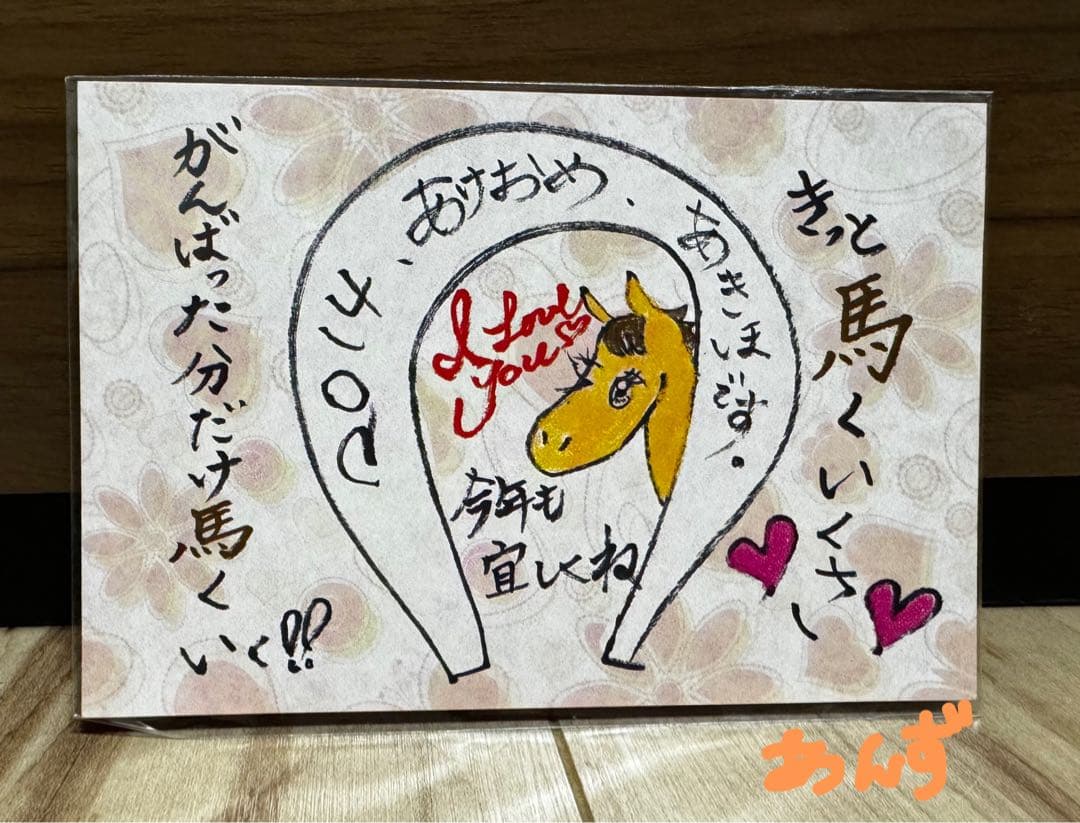 きっと馬くいくさ
2026、あけおめ、あきほです。
I Love you
今年も
宜しくね
がんばった分だけ馬くいく!!
あんず